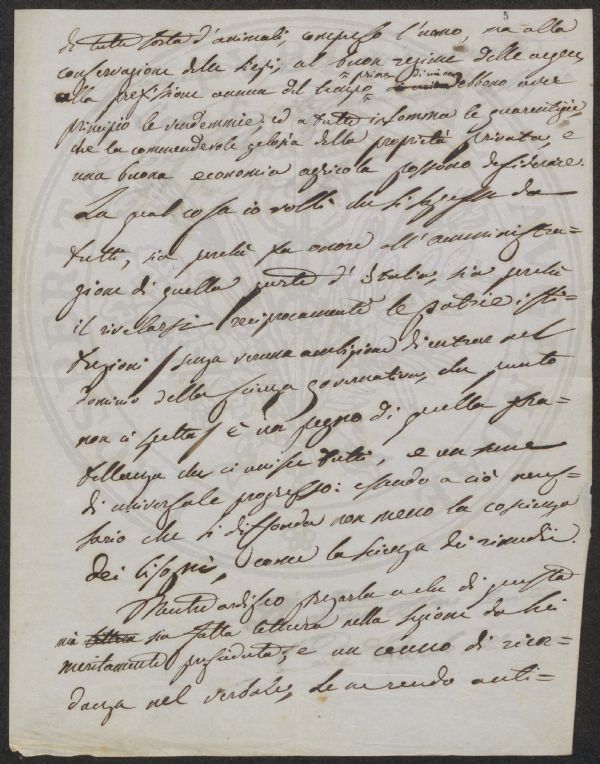 5
di tutte sorta d'animali, compreso l'uomo, ma alla
conservazione delle siepi, al buon regime delle acque,
alla prefissione annua del tempo prima di cui non debbono aver
principio le vendemmie, ed a tutte insomma le guarentigie,
che la commendevole gelosia della proprietà privata, e
una buona economia agricola possono desiderare.
La qual cosa io volli che si sapesse da
tutti, sia perchè fa onore all'amministra-
zione di quella parte d'Italia, sia perchè
il rivelarsi reciprocamente le patrie isti-
tuzioni (senza veruna ambizione di entrar nel
dominio della scienza governativa, che punto
non ci spetta) è un pegno di quella fra-
tellanza che ci unisce tutti, e un seme
di universale progresso: essendo a ciò neces-
sario che si diffonda non meno la coscienza
dei bisogni, come la scienza dei rimedii.
Mentre ardisco pregarla a che di questa
mia sia fatta lettura nella sezione da Lei
meritamente preseduta, e un cenno di ricor-
danza nel verbale, Le ne rendo anti-